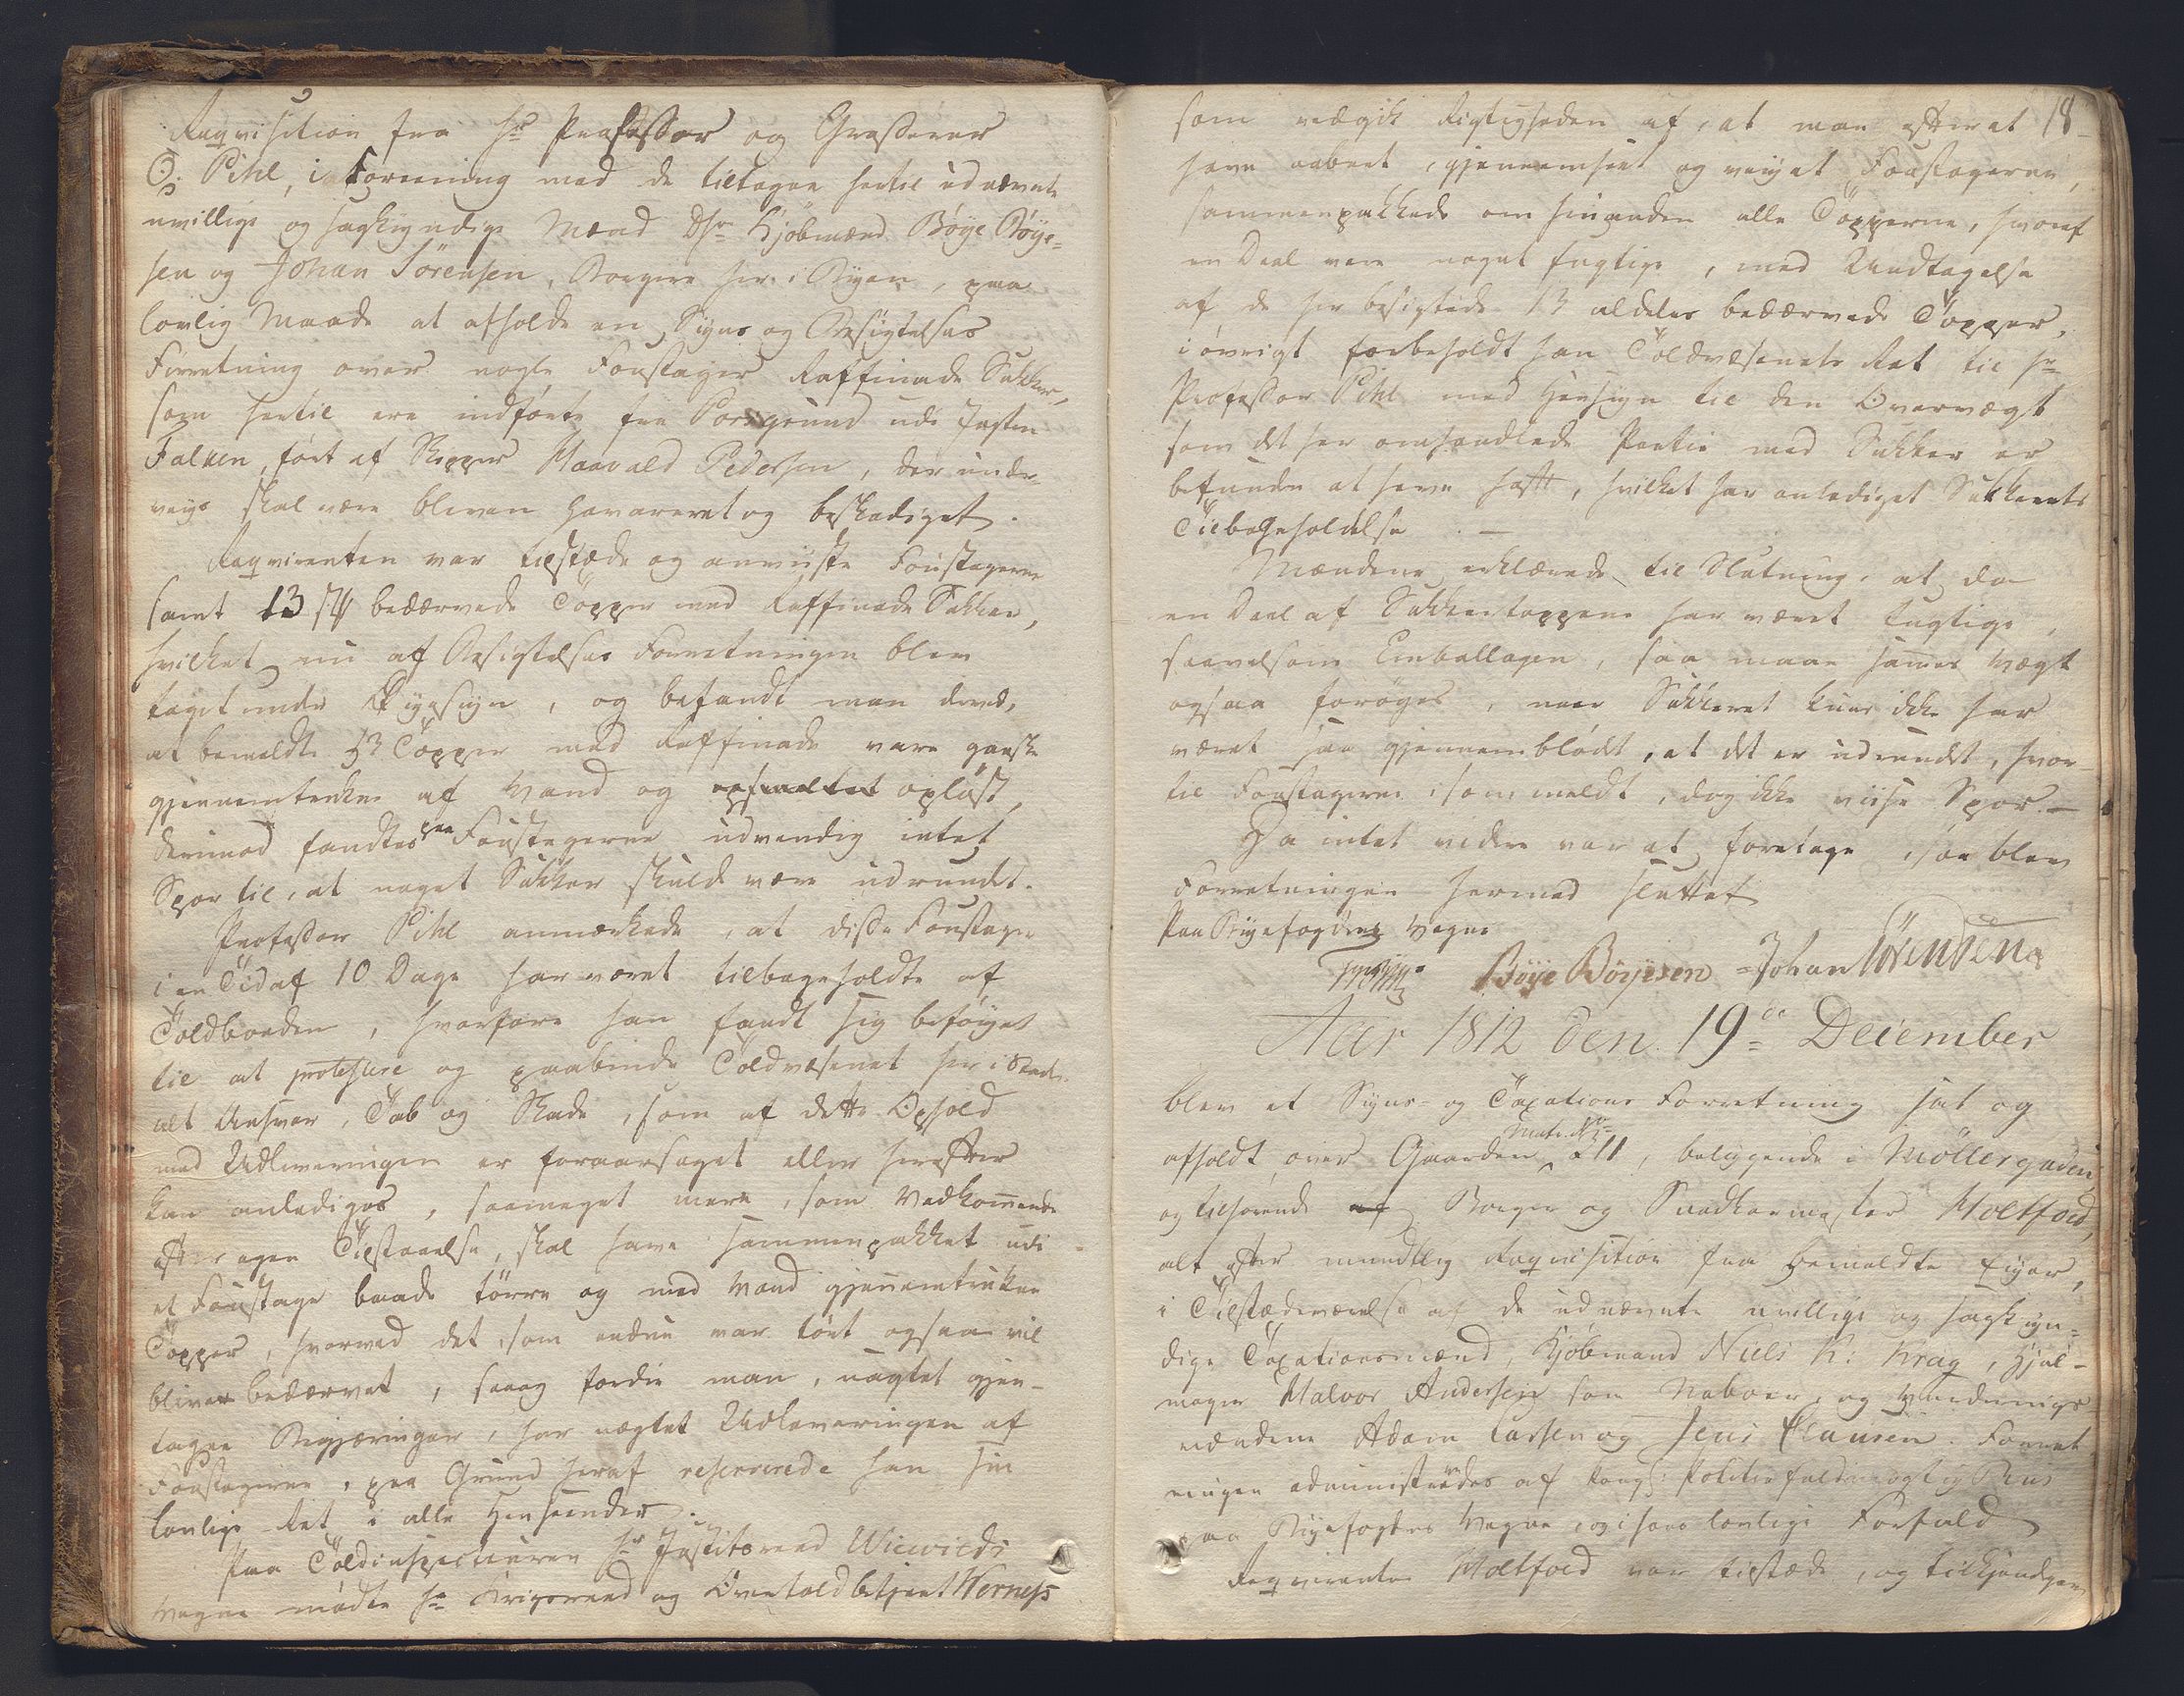 Reqvisition fra Hr Professor og Grosserer
O. Pihl, i Forening med de tiltagne hertil udnævnte
uvillige og sagkyndige Mænd Dhr Kjöbmænd Böye Böye-
sen og Johan Sörensen, Borgere her i Byen, paa
lovlig Maade at afholde en Syns og Besigtelses
Forretning over nogle Foustager Raffinade Sukker,
som hertil ere indförte fra Porsgrund udi Jagten
Falken, fört af Skipper Haavald Pedersen, der under-
veys skal være bleven havareret og beskadiget.
Reqvirenten var tilstæde og anviiste Foustagerne
samt 13 st bedærvede Topper med Raffinade Sukker,
hvilket nu af Besigtelses Forretningen blev
taget under Öyesiyn, og befandt man derved,
at bemeldte 13 Topper med Raffinade vare ganske
gjennemtrukne af Vand og opsmeltet oplöst,
derimod fandtes paa Foustagerne udvendig intet
Spor til, at noget Sukker skulde være udrundet.
Professor Pihl anmærkede, at disse Foustager
i en Tid af 10 Dage har været tilbageholdte af
Toldboden, hvorfore han fandt sig beföyet
til at protestere og paabinde Toldvæsenet her i Stæden
alt Ansvar, Tab og Skade, som af dette Ophold
med Udleveringen er foraarsaget eller herefter
kan anlediges, saameget mere, som Vedkommende
efter egen Tilstaaelse, skal have sammenpakket udi
et Foustage baade törre og med Vand gjennemtrukne
Topper, hvorved det, som endnu var tört ogsaa vil
bliver bedærvet, saaog fordi man, uagtet gjen-
tagne Begjæringer, har nægtet Udleveringen af
Foustagerne, paa Grund heraf reserverede han sin
lovlige Ret i alle Henseender.
Paa Toldinspecteuren Hr Justitsraad Wiewilds
Vegne mödte Hr Krigsraad og Overtoldbetjent Werness
18
som vedgik Rigtigheden af, at man efterat
have aabnet, gjennemseet og veyet Foustagerne,
sammenpakkede om hinanden alle Topperne, hvoraf
en Deel vare noget fugtige, med Undtagelse
af de her besigtede 13 aldeles bedærvede Topper,
i övrigt forbeholdt han Toldvæsenets Ret til Hr
Professor Pihl med Hensyn til den Overvægt
som det her omhandlede Partie med Sukker er
befunden at have havt, hvilket har anlediget Sukkerets
Tilbageholdelse. —
Mændene erklærede til Slutning, at da
en Deel af Sukkertoppene har været fugtige,
saavelsom Emballagen, saa maae sammes Vægt
ogsaa foröges, naar Sukkeret kuns ikke har
været saa gjennemblödt, at det er udrundet, hvor-
til Foustagerne, som meldt, dog ikke viise Spor. —
Da intet videre var at foretage, saa blev
Forretningen hermed sluttet
Paa Byefogdens Vegne
Böye Böyesen Johan Sörensen
Aar 1812 den 19de December
blev et Syns- og Taxations Forretning sat og
afholdt over Gaarden Matr. No 211, beliggende i Möllergaden,
og tilhörende af Borger og Snedkermester Holtfoed,
alt efter mundtlig Reqvisition fra bemeldte Eiger,
i Tilstædeværelse af de udnævnte uvillige og sagkyn-
dige Taxationsmænd, Kjöbmand Niels K: Krag, Hjul-
mager Halvor Andersen som Naboer, og Vurderings
mændene Adam Larsen og Jens Clausen. Forret
ningen administreredes af Kongl: Politiefuldmægtig Bius
paa Byefogdens Vegne, og i hans lovlige Forfald
Reqvirenten Holtfoed var tilstæde, og tilkjendegav